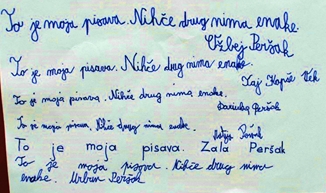 To je moja pisava. Nihče drug nima enake.
Užbej Peršak
To je moja pisava. Nihče drug nima enake.
Kaj Kapič Veh
To je moja pisava. Nihče drug nima enake.
Peršak
To je moja pisava. Nihče drug nima enake.
To je moja pisava. Zala Peršak
To je moja pisava. Nihče drug nima
enake. Urban Peršak